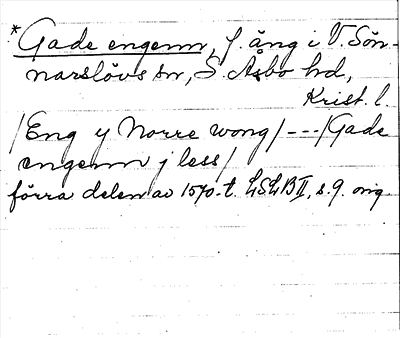 * Gade engenn, f. äng i V. Sön-
narslövs sn, S. Åsbo hd,
Krist. l.
/Eng y Norre wong/ --- /Gade
engenn j less/
förra delen av 1570-t. LSLB II, s. 9. orig